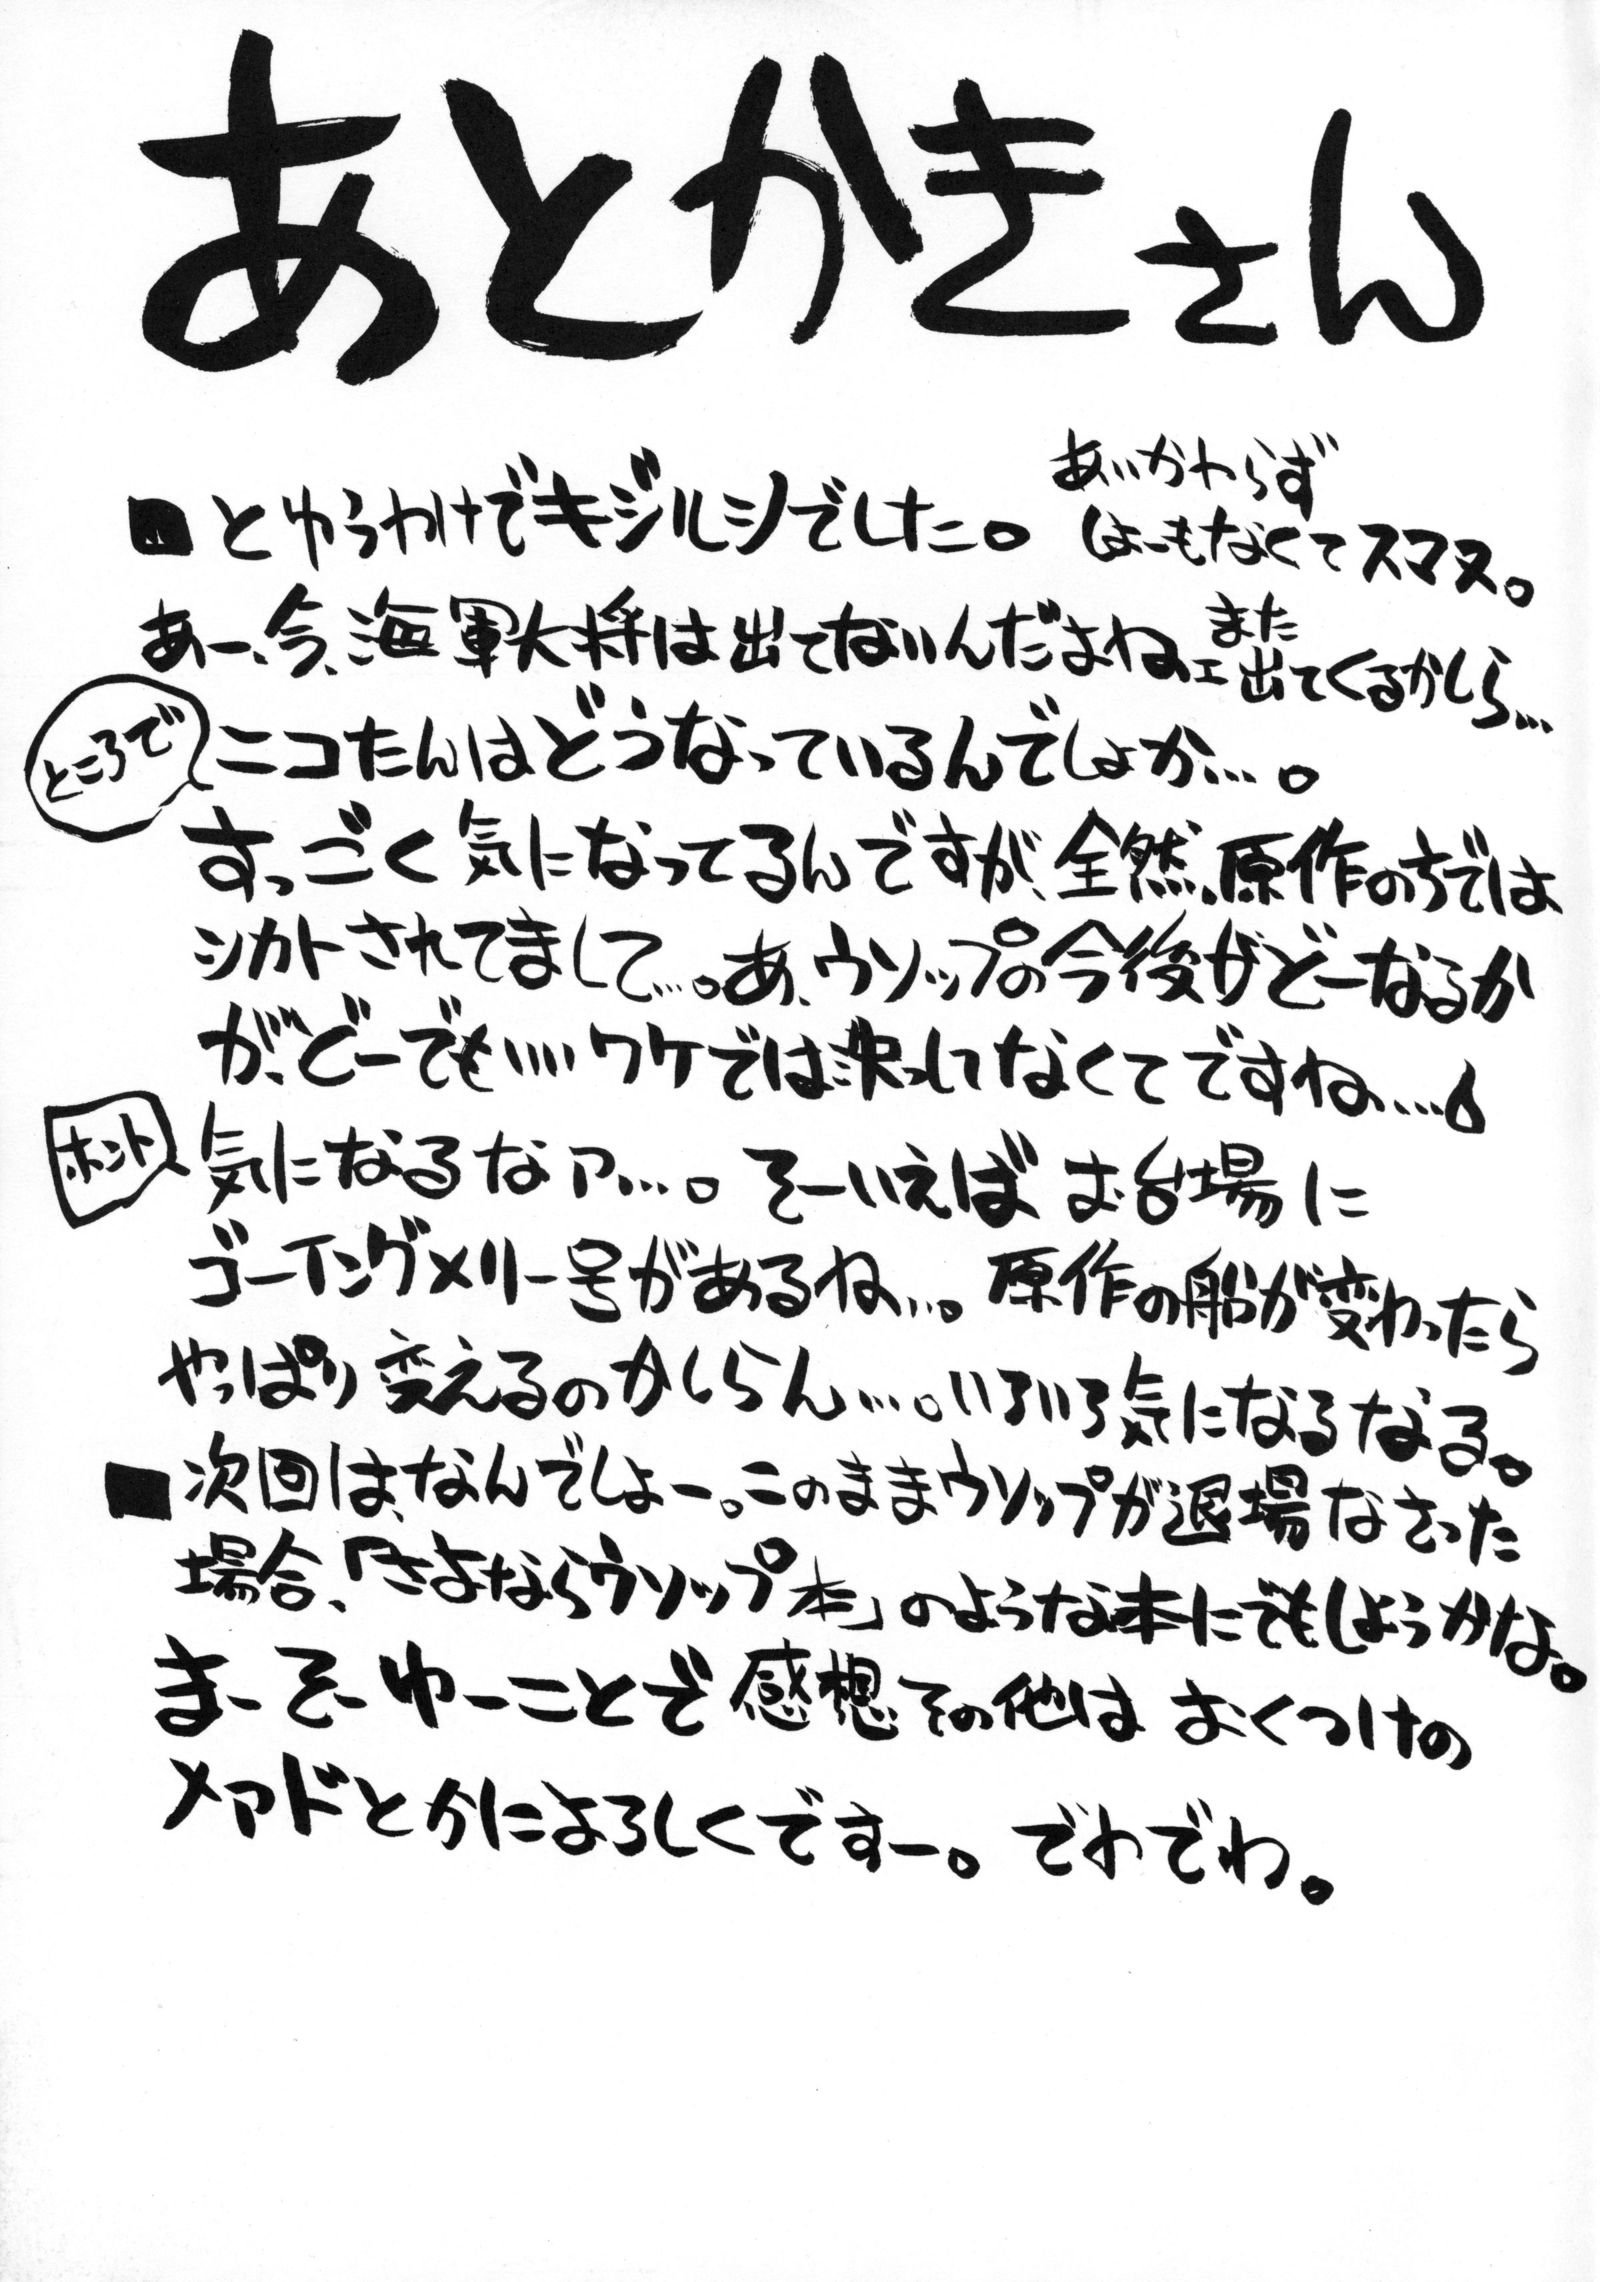 あとかきさん
■とゆうわけでキジルシでした。あいかわらず
しょーもなくてスマヌ。
あー、今、海軍大将は出てないんだよねェ、また
出てくるかしら…
ところで
ニコたんはどうなっているんでしょか…。
すっごく気になってるんですが、全然、原作のちでは
シカトされてまして…。あ、ウソップの今後がどーなるか
が、どーでもいい…ワケでは決してなくてですね…
ホント
気になるなァ…。そーいえばお台場に
ゴーイングメリー号があるね…。原作の船が変わったら
やっぱり変えるのかしらん…。いろいろ気になるなる。
■次回は、なんでしょー。このままウソップが退場なさった
場合、「さよならウソップ本」のような本にでもしようかな。
まーそーゆーことで感想その他はおくつけの
メアドとかによろしくですー。でわでわ。